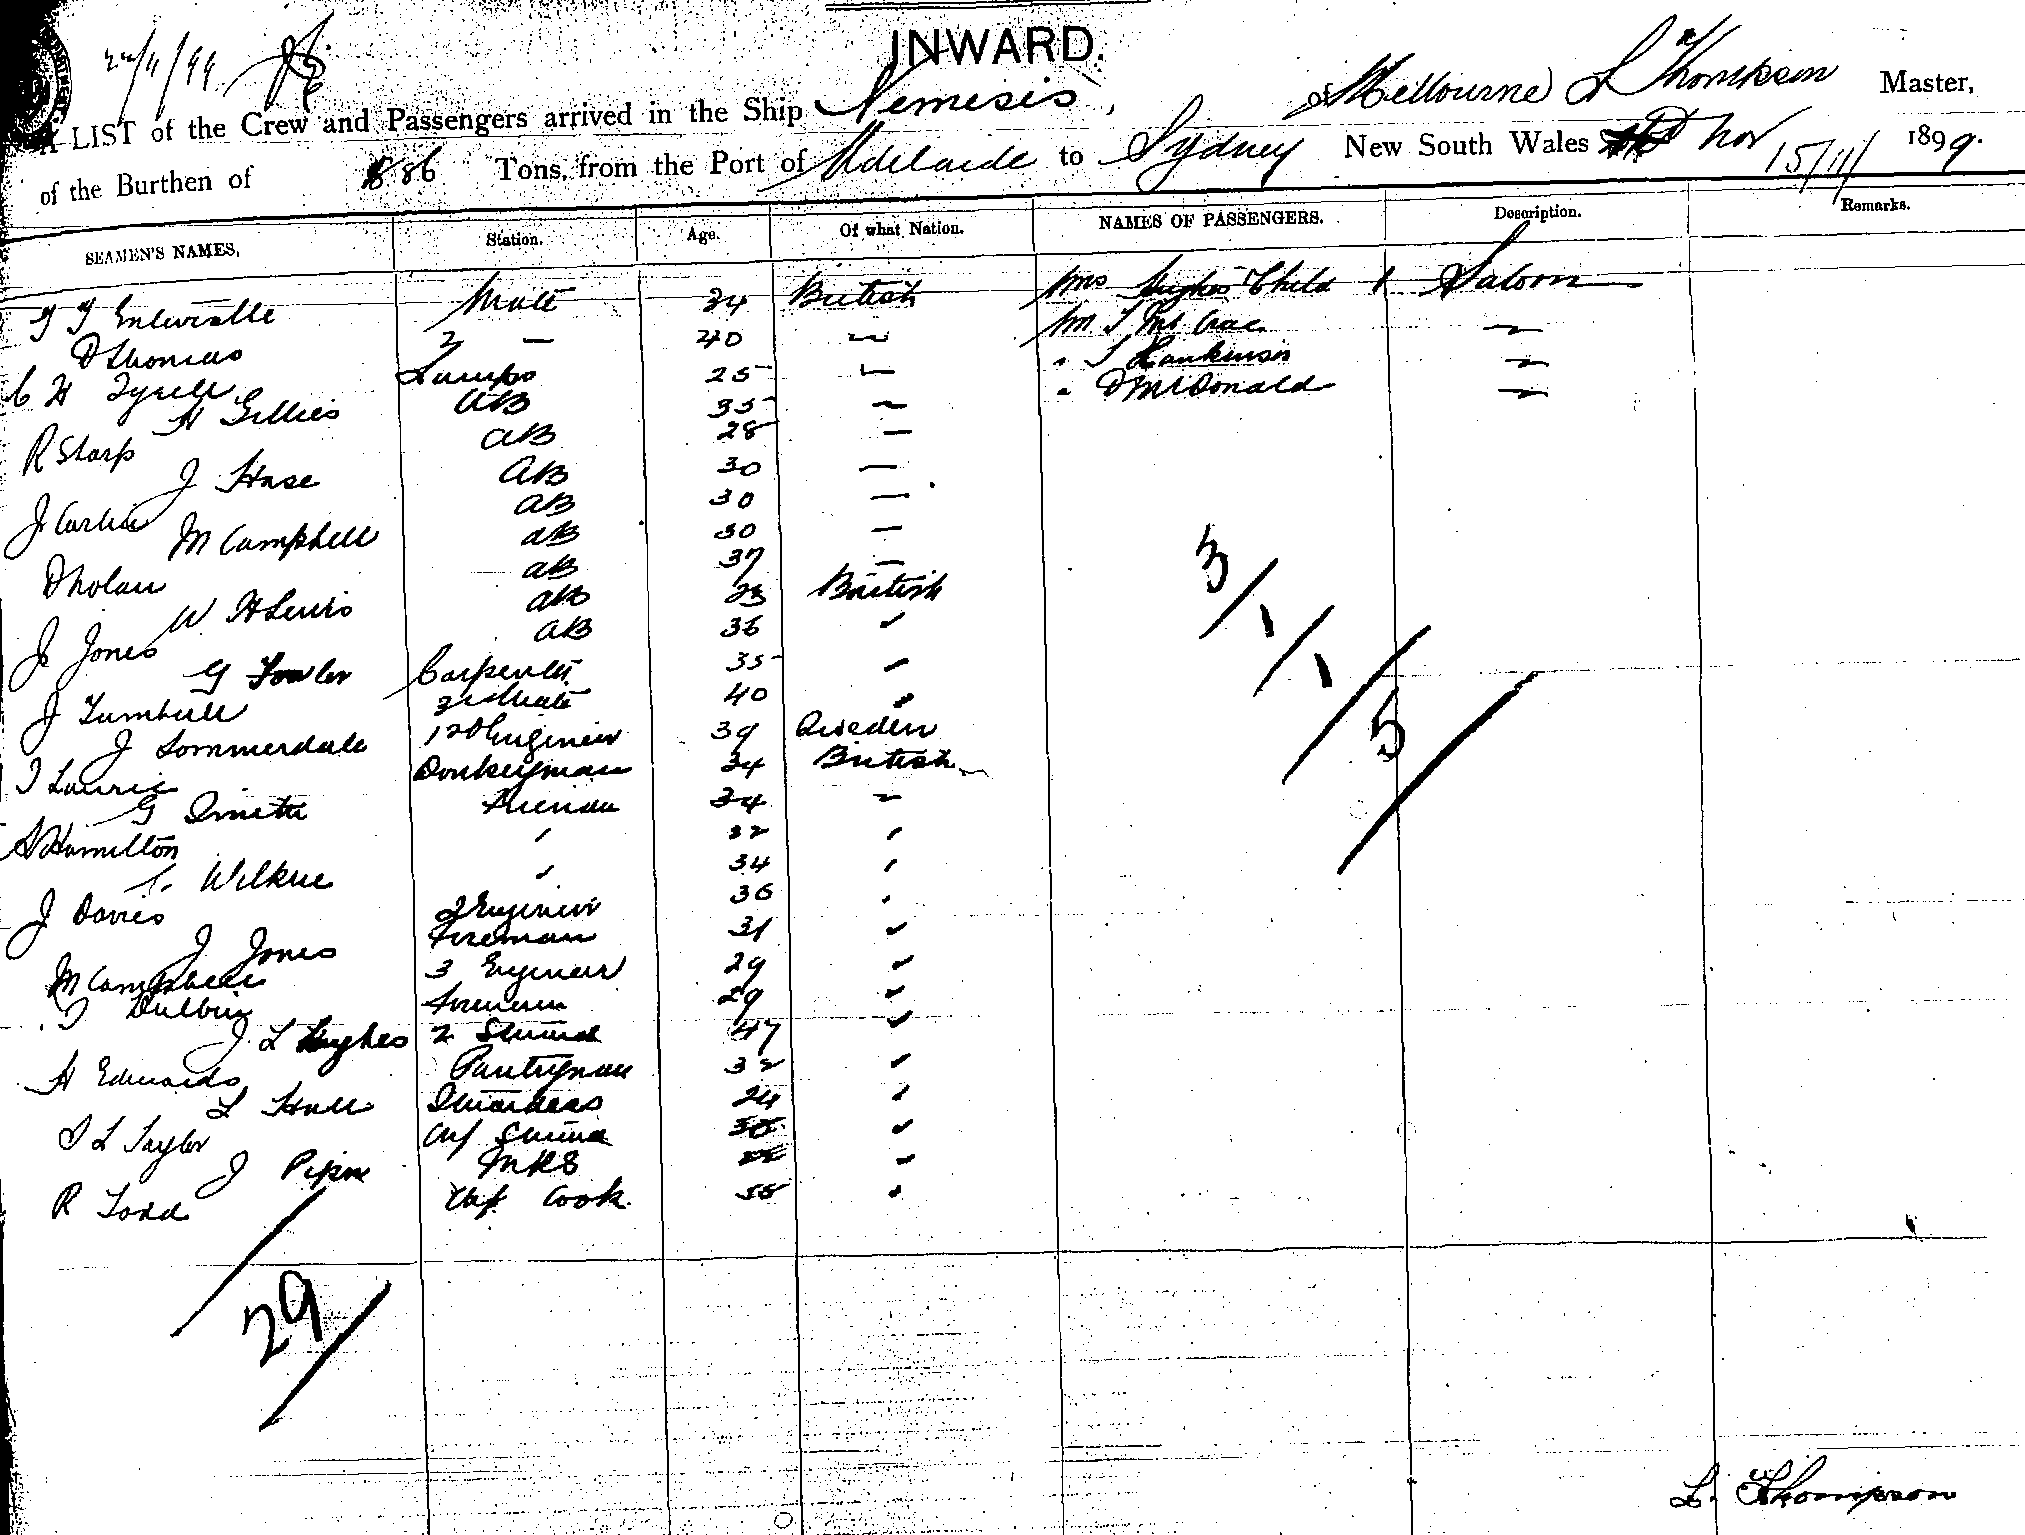 INWARD.
A LIST of the Crew and Passengers arrived in the Ship Nemesis, of Melbourne L Thompson Master,
of the Burthen of 886 Tons, from the Port of Adelaide to Sydney New South Wales Nov 15/11/ 1899.
SEAMEN'S NAMES, Station. Age. Of what Nation. NAMES OF PASSENGERS. Description. Remarks.
Mate 34 British Mrs Hughes Child 1 Saloon
D Thomas 2 — 40 —
C H Tyrell Lamps 25 — " T Hankinson —
H Gillies AB 35 — " D McDonald —
R Sharp AB 28 —
J Hase AB 30 —
J AB 30 —
M Campbell AB 30 —
D Nolan AB 37 —
W H Lewis AB 23 British
J Jones AB 36 "
G Fowler Carpenter 35 "
J Turnbull 40 "
J Sommerdale 1st Engineer 39 Sweden
T Laurie Donkeyman 34 British
G 34 "
Hamilton " 32 "
Wilkie " 34 "
J Davies 2 Engineer 36 "
J Jones Fireman 31 "
M Campbell 3 Engineer 29 "
Fireman 29 "
J L Hughes 2 Steward 47 "
H Edwards Pantryman 32 "
L Hall Stewardess 24 "
T L Taylor Chf Steward "
J "
R Todd Chf Cook "
3/1/1/5/
29
L. Thompson